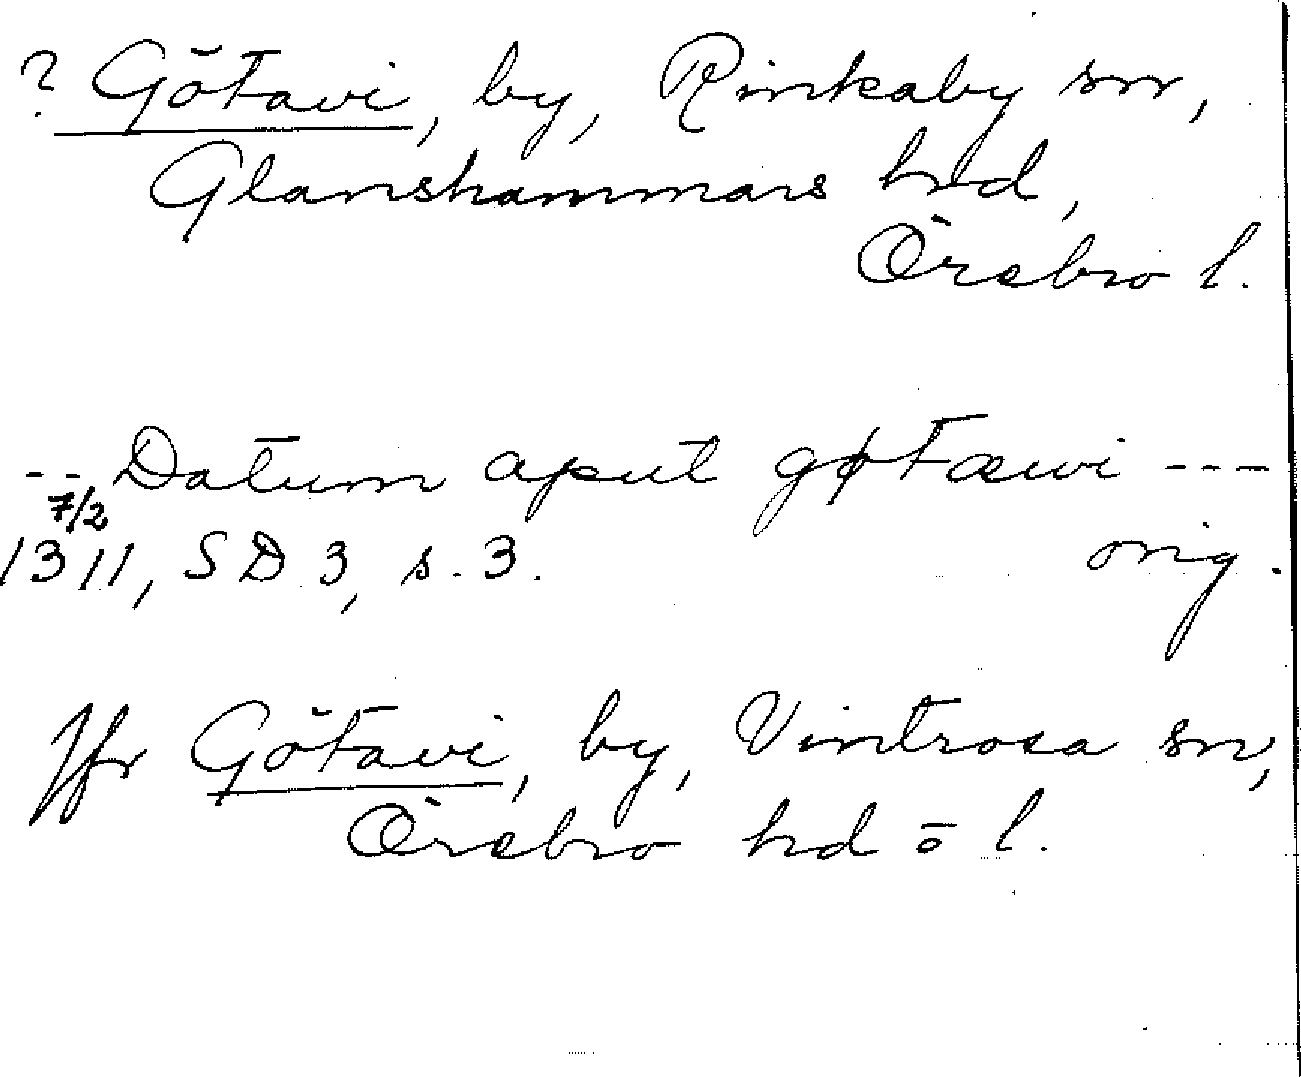 ? Götavi, by, Rinkaby sn,
Glanshammars hrd,
Örebro l.
--- Datum aput gøtæwi ---
7/2
1311, SD 3, s. 3. orig.
Jfr Götavi, by, Vintrosa sn,
Örebro hrd o l.